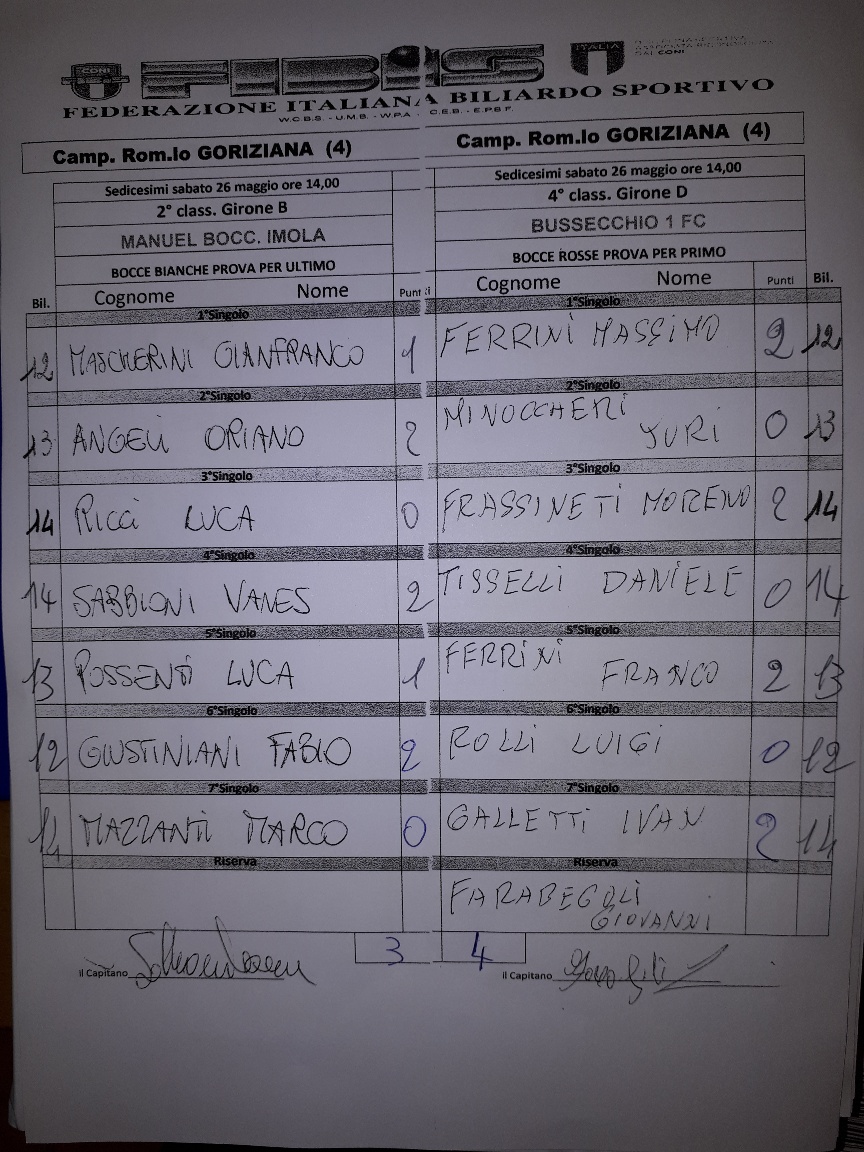 CONI
FIBiS
ITALIA
FEDERAZIONE ITALIANA BILIARDO SPORTIVO
W.C.B.S. - U.M.B. - W.P.A. - C.E.B. - E.P.B.F.
Camp. Rom.lo GORIZIANA (4) Camp. Rom.lo GORIZIANA (4)
Sedicesimi sabato 26 maggio ore 14,00 Sedicesimi sabato 26 maggio ore 14,00
2° class. Girone B 4° class. Girone D
MANUEL BOCC. IMOLA BUSSECCHIO 1 FC
BOCCE BIANCHE PROVA PER ULTIMO BOCCE ROSSE PROVA PER PRIMO
Bil. Cognome Nome Punti Cognome Nome Punti Bil.
1°Singolo 1°Singolo
12 MASCHERINI GIANFRANCO 1 FERRINI MASSIMO 2 12
2°Singolo 2°Singolo
13 ANGELI ORIANO 2 MINOCCHERI YURI 0 13
3°Singolo 3°Singolo
14 RICCI LUCA 0 FRASSINETI MORENO 2 14
4°Singolo 4°Singolo
14 SABBIONI VANES 2 TISSELLI DANIELE 0 14
5°Singolo 5°Singolo
13 POSSENTI LUCA 1 FERRINI FRANCO 2 13
6°Singolo 6°Singolo
12 GIUSTINIANI FABIO 2 ROLLI LUIGI 0 12
7°Singolo 7°Singolo
14 MAZZANTI MARCO 0 GALLETTI IVAN 2 14
Riserva Riserva
FARABEGOLI GIOVANNI
3 4
Il Capitano Il Capitano